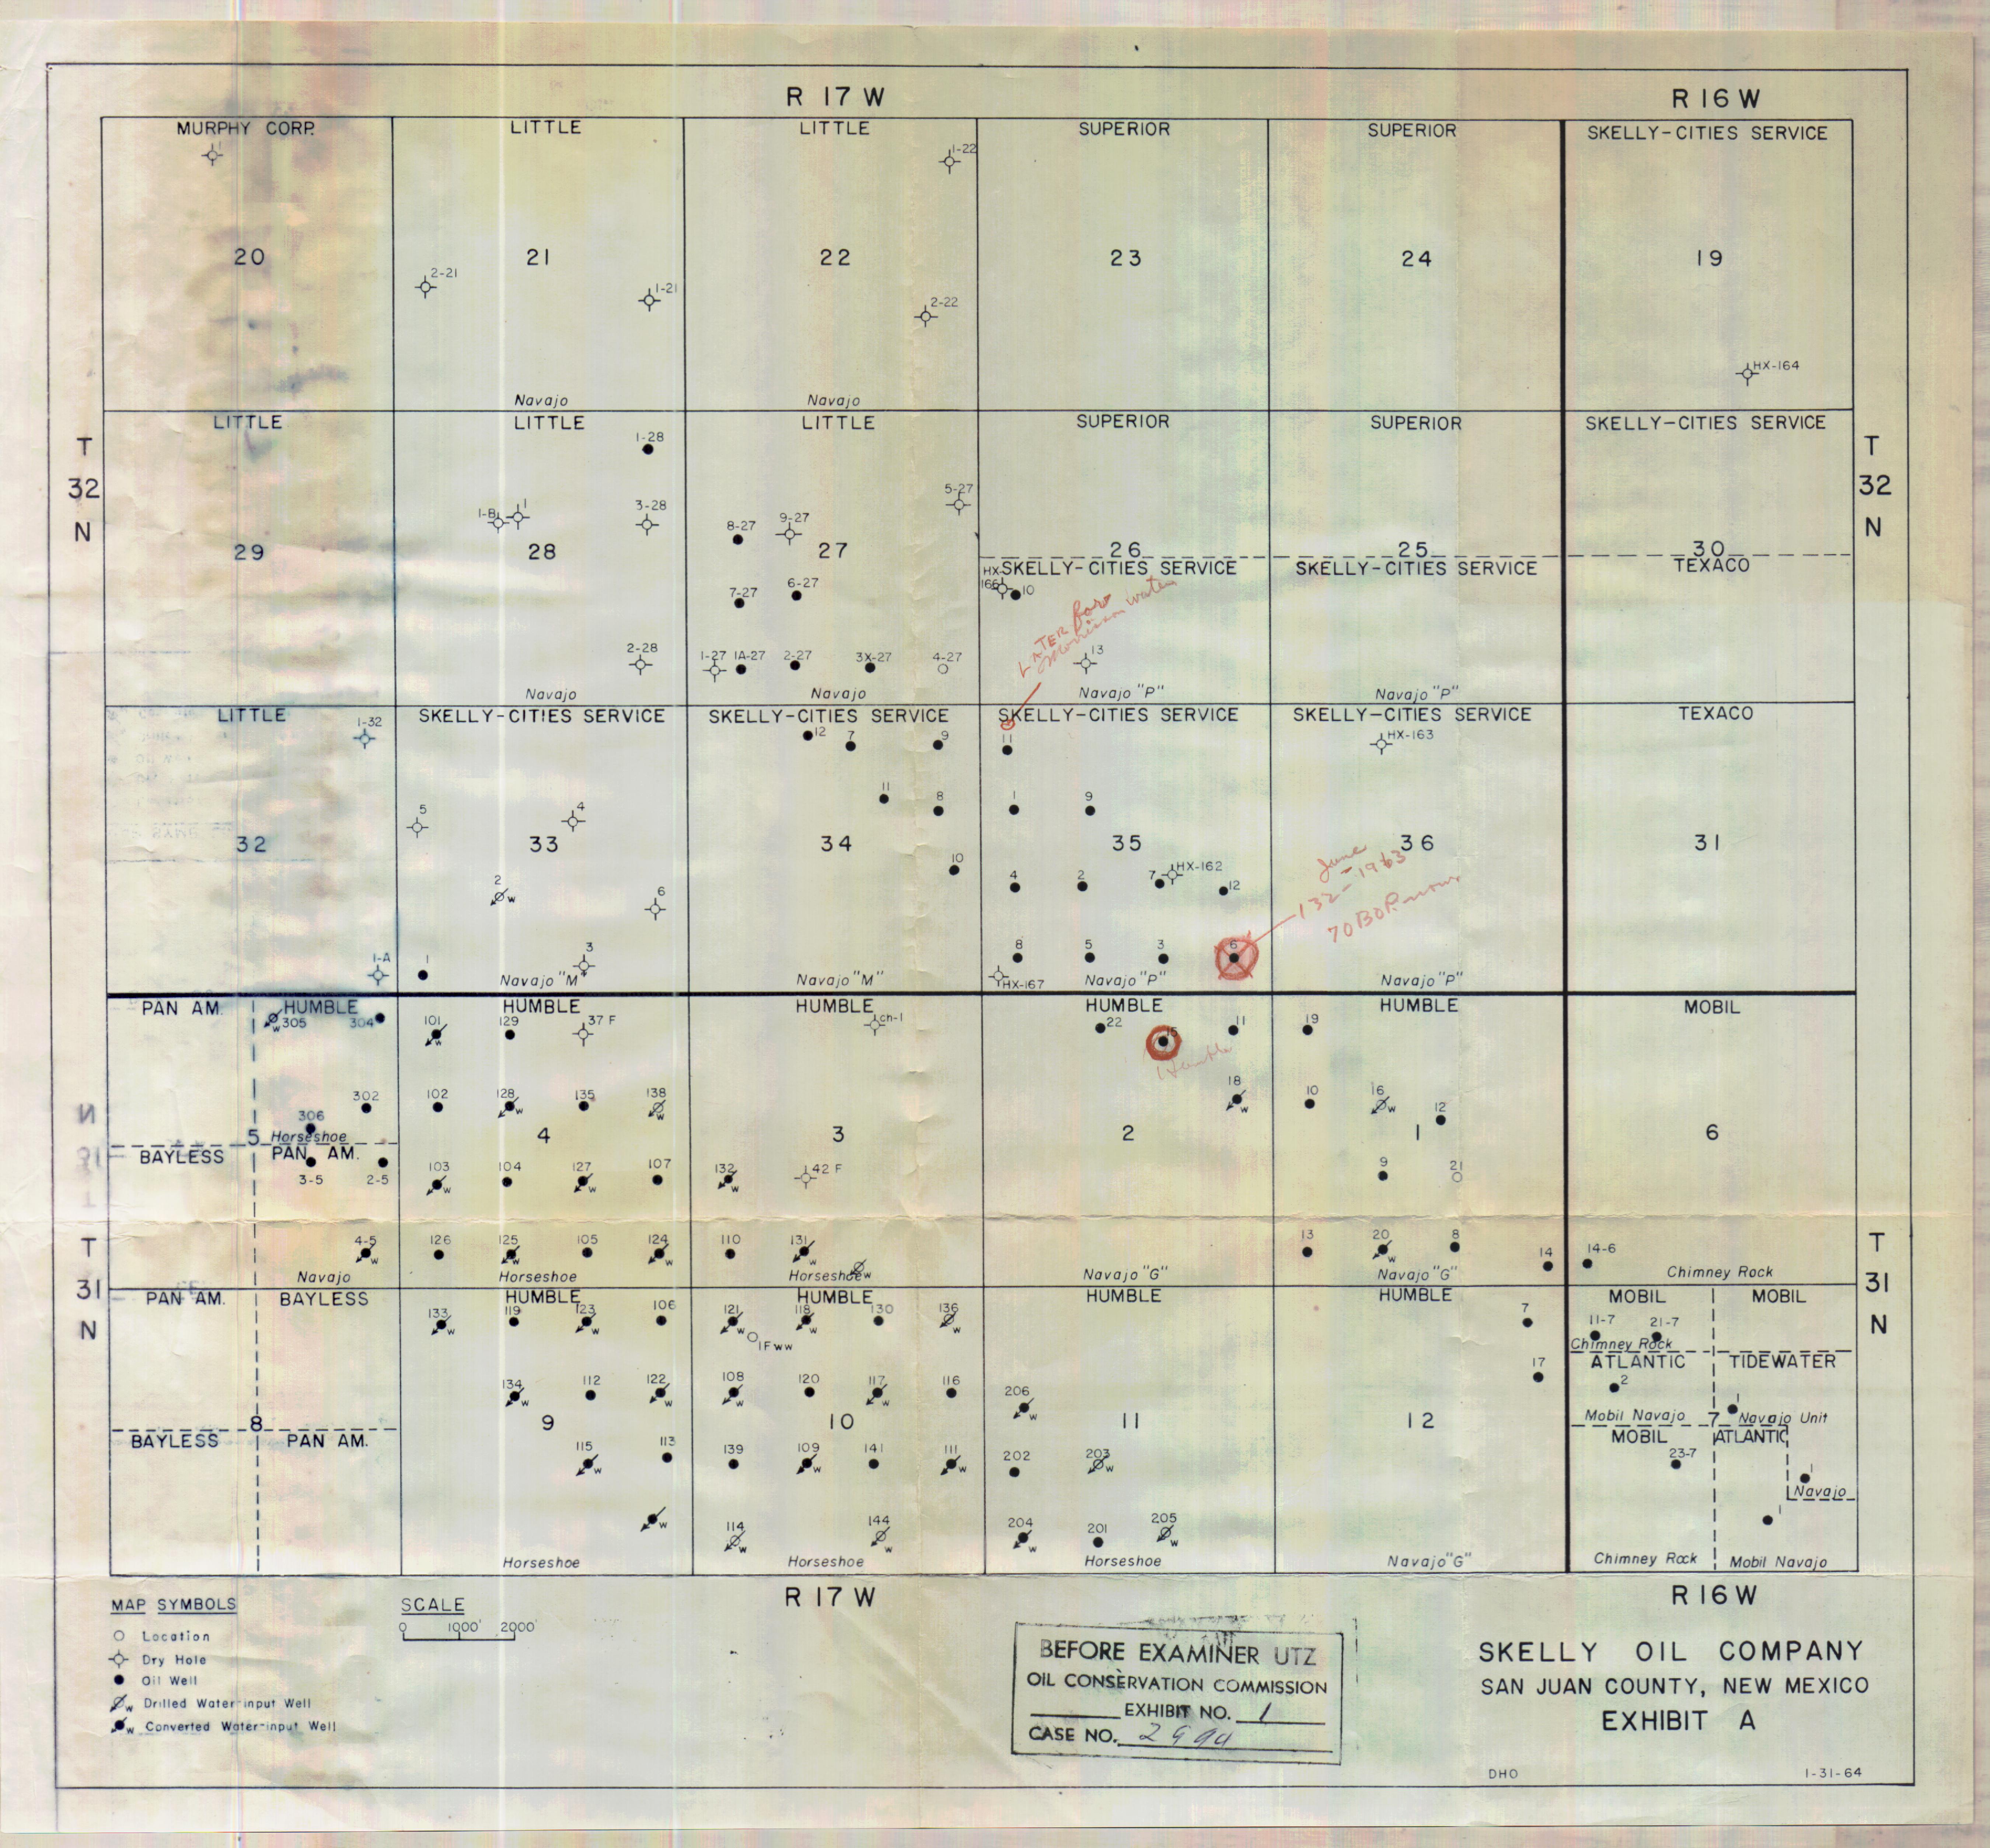 R 17 W
R 16 W
MURPHY CORP.
LITTLE
LITTLE
SUPERIOR
SUPERIOR
SKELLY-CITIES SERVICE
1
1-22
20
21
22
23
24
19
2-21
1-21
2-22
HX-164
Navajo
Navajo
LITTLE
LITTLE
LITTLE
SUPERIOR
SUPERIOR
SKELLY-CITIES SERVICE
T
32
N
T
32
N
1-28
5-27
1-B
1
3-28
8-27
9-27
29
28
27
26
25
30
SKELLY-CITIES SERVICE
SKELLY-CITIES SERVICE
TEXACO
HX-
166
10
7-27
6-27
LATER for
Morrison water
2-28
1-27
1A-27
2-27
3X-27
4-27
13
Navajo
Navajo
Navajo "P"
Navajo "P"
LITTLE
SKELLY-CITIES SERVICE
SKELLY-CITIES SERVICE
SKELLY-CITIES SERVICE
SKELLY-CITIES SERVICE
TEXACO
1-32
12
7
9
11
HX-163
5
4
11
8
1
9
32
33
34
35
36
31
June
- 1963
132-
70 BOP. now
2
6
10
4
2
7
HX-162
12
1-A
1
3
8
5
3
6
HX-167
Navajo "M"
Navajo "M"
Navajo "P"
Navajo "P"
PAN AM.
HUMBLE
HUMBLE
HUMBLE
HUMBLE
HUMBLE
MOBIL
W
305
304
101
W
129
37 F
ch-1
22
15
11
19
Humble
302
102
128
W
135
138
W
18
W
10
16
W
12
306
5
Horseshoe
4
3
2
1
6
BAYLESS
PAN AM.
3-5
2-5
103
W
104
127
W
107
132
W
42 F
9
21
T
31
N
T
31
N
4-5
W
126
125
W
105
124
W
110
131
W
W
13
20
W
8
14
14-6
Navajo
Horseshoe
Horseshoe
Navajo "G"
Navajo "G"
Chimney Rock
PAN AM.
BAYLESS
HUMBLE
HUMBLE
HUMBLE
HUMBLE
MOBIL
MOBIL
133
W
119
123
W
106
121
W
118
W
130
136
W
1FWW
7
11-7
21-7
Chimney Rock
ATLANTIC
TIDEWATER
134
W
112
122
W
108
W
120
117
W
116
206
W
17
2
1
8
9
10
11
12
Mobil Navajo
7
Navajo Unit
BAYLESS
PAN AM.
MOBIL
ATLANTIC
115
W
113
139
109
W
141
111
W
202
203
W
23-7
1
Navajo
W
114
W
144
W
204
W
201
205
W
1
Horseshoe
Horseshoe
Horseshoe
Navajo "G"
Chimney Rock
Mobil Navajo
R 17 W
R 16 W
MAP SYMBOLS
Location
Dry Hole
Oil Well
W Drilled Water-input Well
W Converted Water-input Well
SCALE
0 1000' 2000'
BEFORE EXAMINER UTZ
OIL CONSERVATION COMMISSION
EXHIBIT NO. 1
CASE NO. 2994
SKELLY OIL COMPANY
SAN JUAN COUNTY, NEW MEXICO
EXHIBIT A
DHO
1-31-64